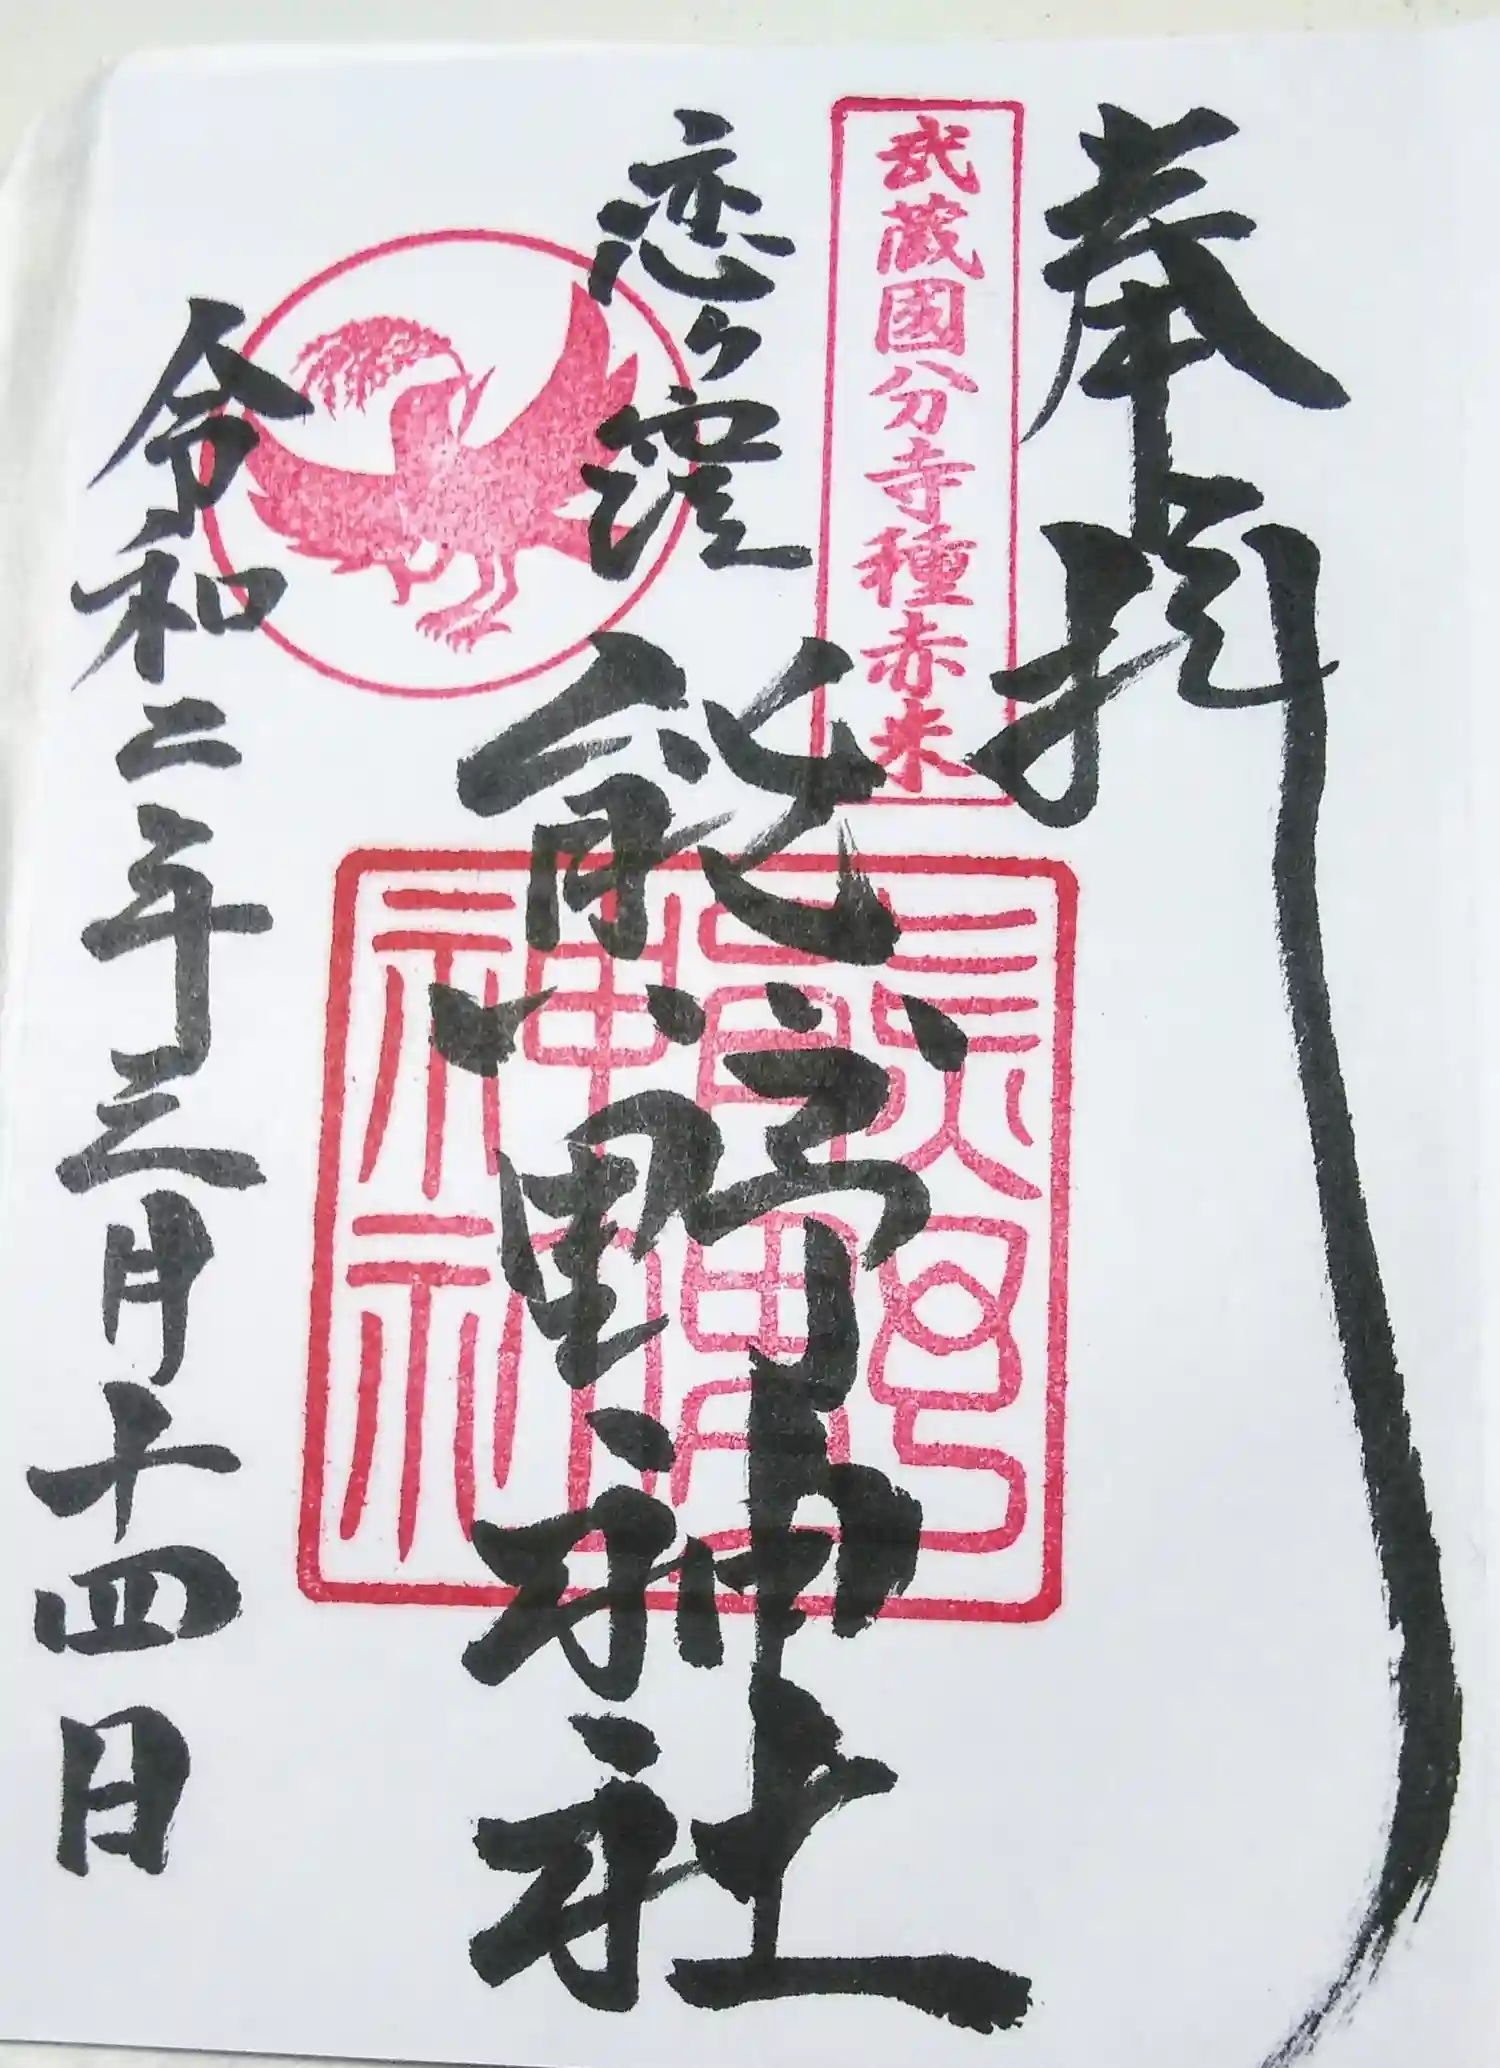 奉拝
武蔵國分寺種赤米
恋ヶ窪
熊野神社
令和二年三月十四日